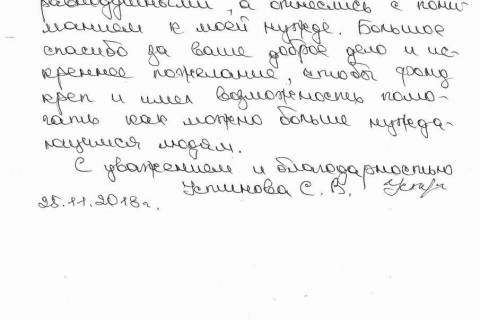 равнодушными, а отнеслись с пони-
манием к моей нужде. Большое
спасибо за ваше доброе дело и ис-
креннее пожелание, чтобы фонд
креп и имел возможность помо-
гать как можно больше нужда-
ющимся людям.
С уважением и благодарностью
Устинова С. В.
25.11.2018г.